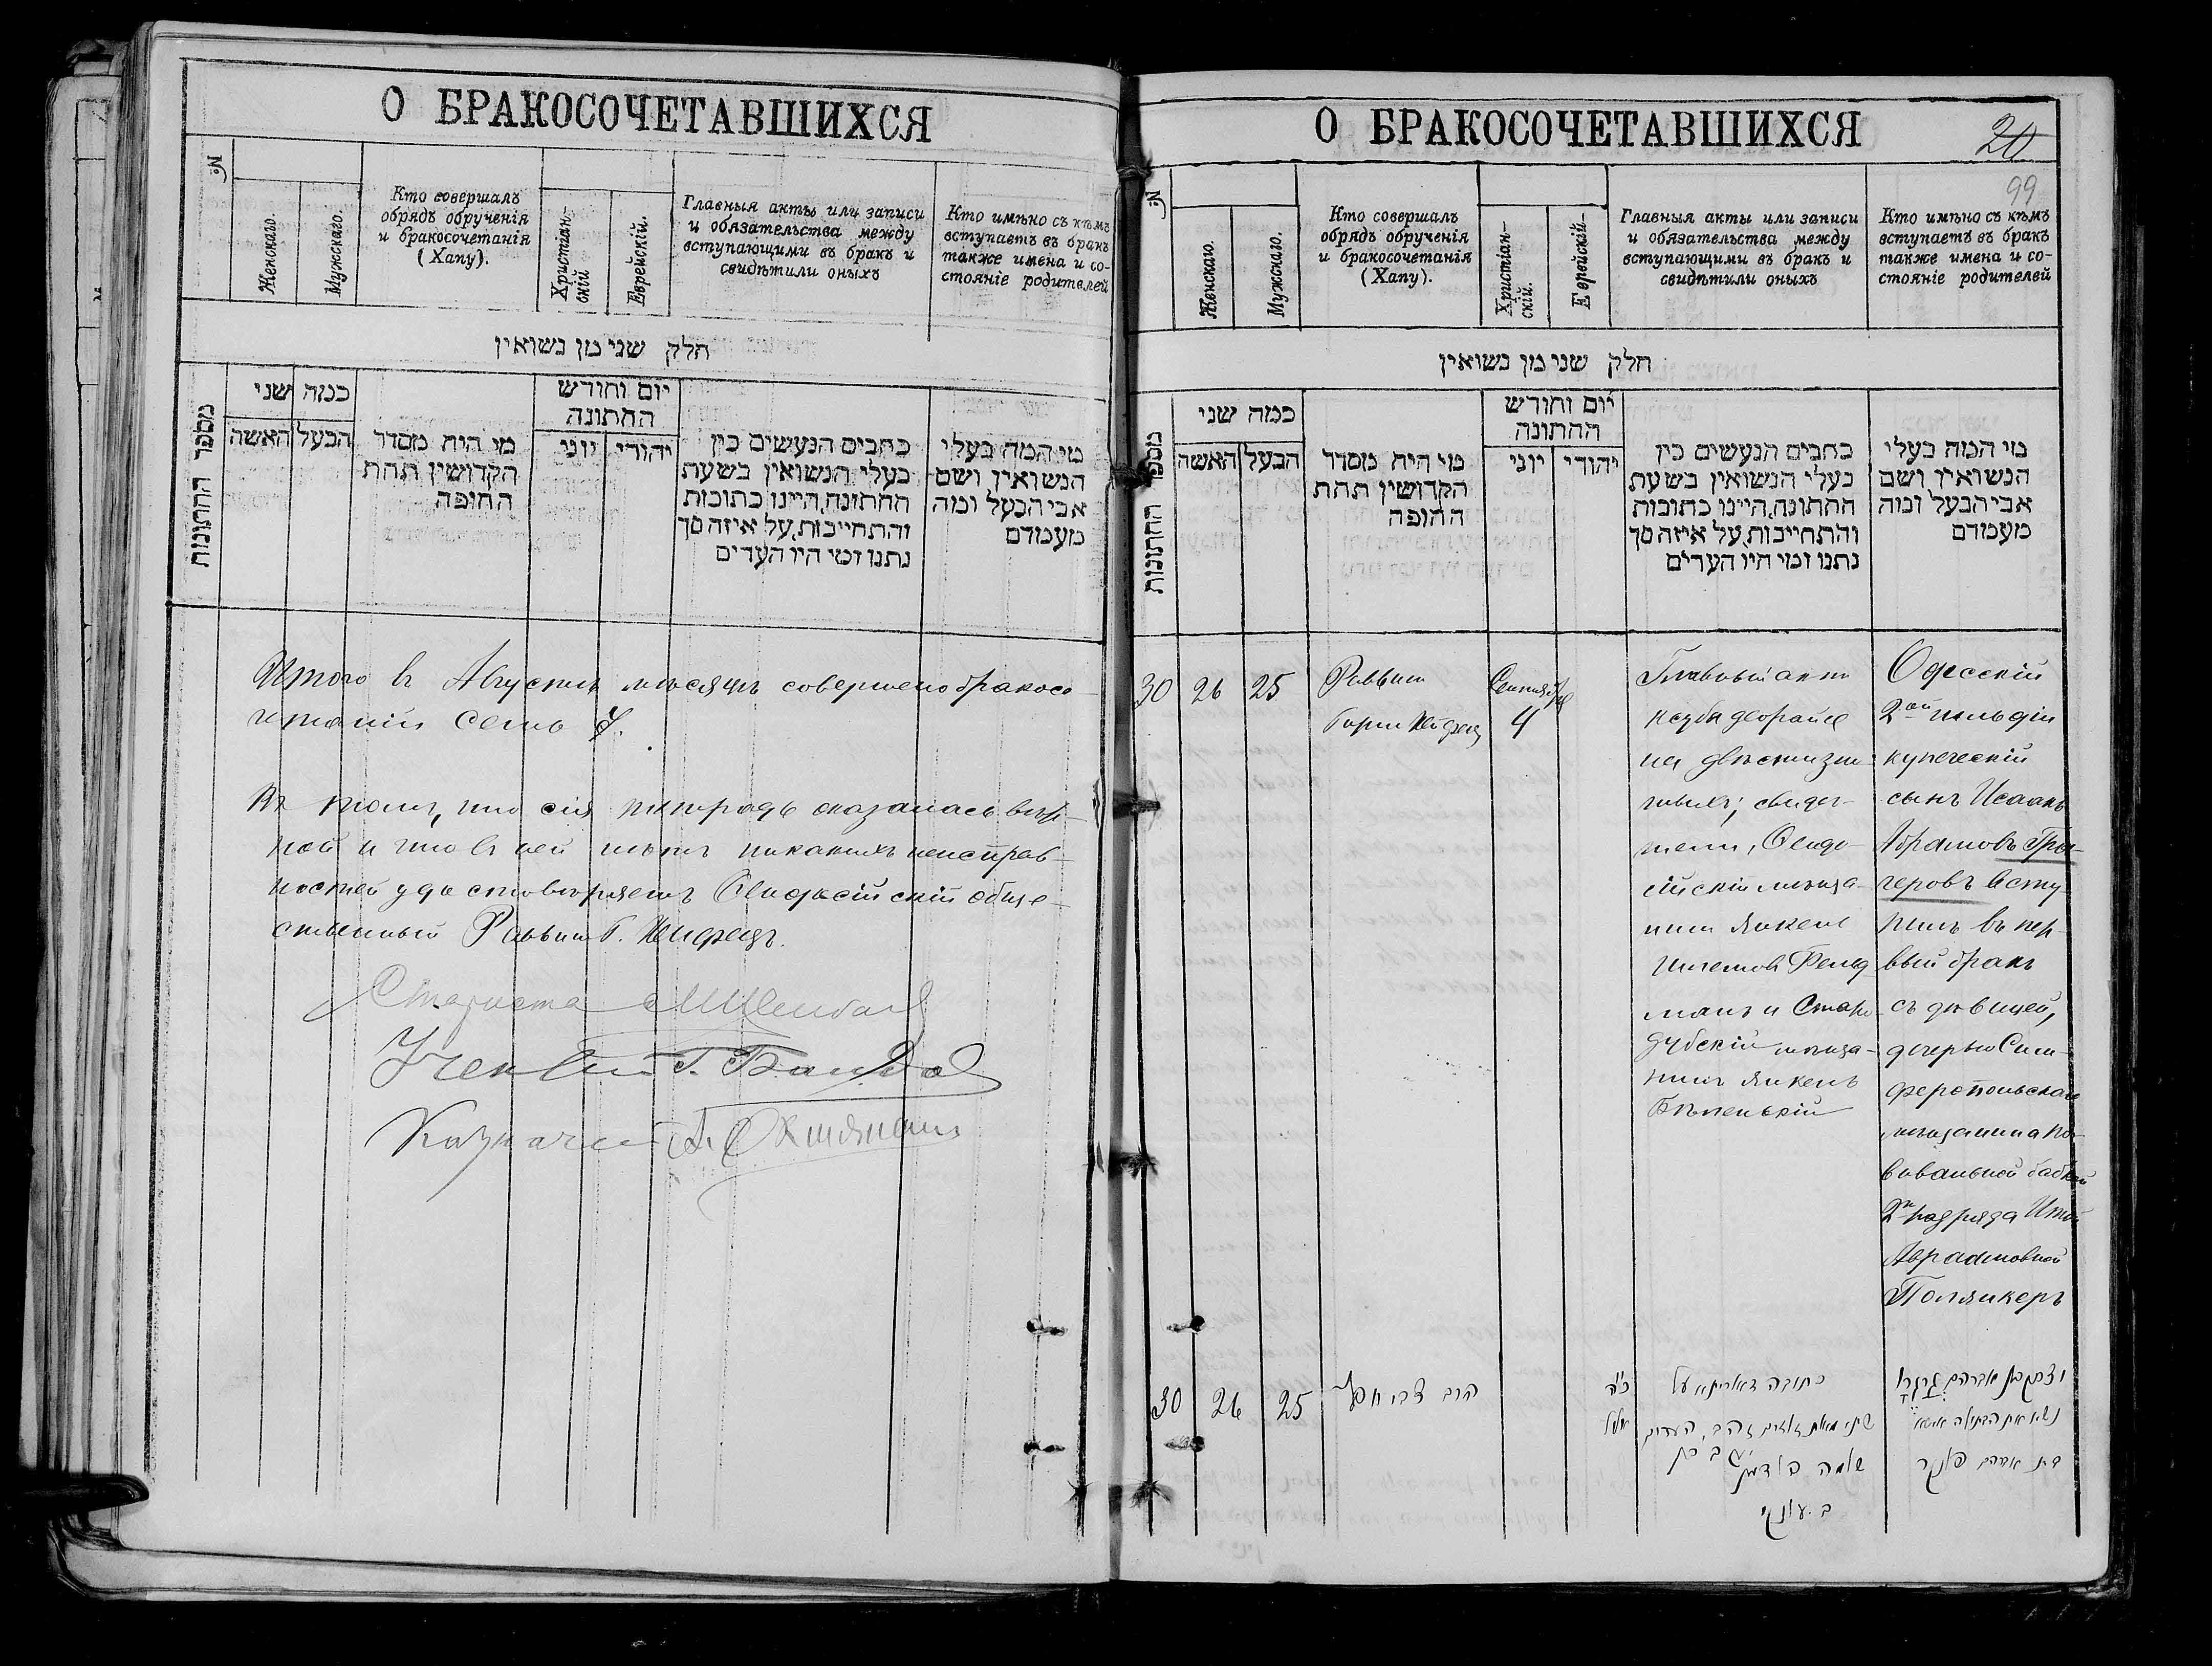 О БРАКОСОЧЕТАВШИХСЯ
№
Женскаго.
Мужскаго.
Кто совершалъ
обрядъ обрученія
и бракосочетанія
(Хапу).
Христіан-
скій
Еврейскій.
Главныя акты или записи
и обязательства между
вступающими въ бракъ и
свидѣтили оныхъ
Кто имѣно съ кѣмъ
вступаетъ въ бракъ
также имена и со-
стояніе родителей
חלק שני מן נשואין
מספר החתונות
כמה שני
האשה
הבעל
מי היה מסדר
הקדושין תחת
החופה
יום וחודש
החתונה
יוני
יהודי
כתבים הנעשים בין
בעלי הנשואין בשעת
החתונה, היינו כתובות
והתחייבות, על איזה סך
נתנו ומי היו העדים
מי המה בעלי
הנשואין ושם
אבי הבעל ומה
מעמדם
Итого въ Августѣ мѣсяцѣ совершено бракосо-
четаній семь 7.
Въ томъ, что сія тетрадь оказалась вѣр-
ной и что въ ней нѣтъ никакихъ неисправ-
ностей удостовѣряетъ Ѳеодосійскій обще-
ственный Раввинъ Б. Хейфецъ.
Староста
Ученый Г.
Казначей
О БРАКОСОЧЕТАВШИХСЯ
20
99
№
Женскаго.
Мужскаго.
Кто совершалъ
обрядъ обрученія
и бракосочетанія
(Хапу).
Христіан-
скій.
Еврейскій-
Главныя акты или записи
и обязательства между
вступающими въ бракъ и
свидѣтили оныхъ
Кто имѣно съ кѣмъ
вступаетъ въ бракъ
также имена и со-
стояніе родителей
חלק שני מן נשואין
מספר החתונות
כמה שני
האשה
הבעל
מי היה מסדר
הקדושין תחת
החופה
יום וחודש
החתונה
יוני
יהודי
כתבים הנעשים בין
בעלי הנשואין בשעת
החתונה, היינו כתובות
והתחייבות, על איזה סך
נתנו ומי היו העדים
מי המה בעלי
הנשואין ושם
אבי הבעל ומה
מעמדם
30
26
25
Раввинъ
Борис Хейфец
Сентября
4
Главный актъ
ксуба деорайсе
на двѣсти зло-
тыхъ; свидѣ-
тели, Ѳеодо-
сійскій мѣща-
нинъ Янкель
Фельд-
манъ и Старо-
дубскій мѣща-
нинъ Янкель
Бѣленькій
Одесскій
2ой гильдіи
купеческій
сынъ Исаакъ
Абрамовъ Гре-
геровъ всту-
пилъ въ пер-
вый бракъ
съ дѣвицей,
дочерью Сим-
феропольскаго
мѣщанина по-
вивальной бабкой
2го разряда Итой
Авраамовной
Полянкеръ
30
26
25
הרב
אלול
כתובה דאורייתא על
שתי מאות זוזים זהב, העדים
אברהם
נשא את הבתולה
בת אברהם